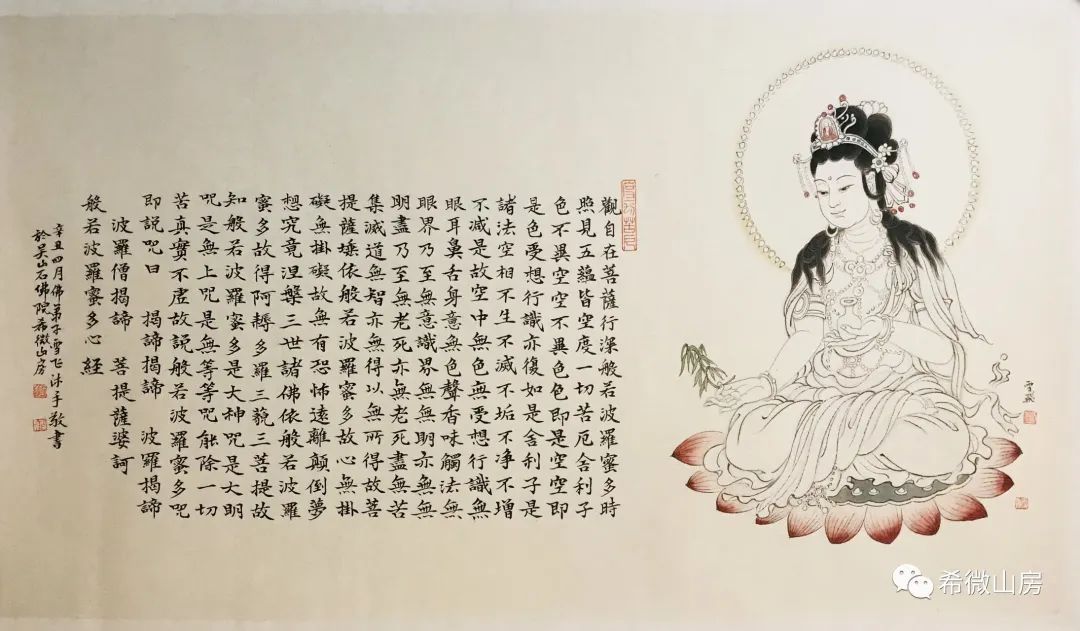 觀自在菩薩行深般若波羅蜜多時
照見五蘊皆空度一切苦厄舍利子
色不異空空不異色色即是空空即
是色受想行識亦復如是舍利子是
諸法空相不生不滅不垢不净不增
不减是故空中無色無受想行識無
眼耳鼻舌身意無色聲香味觸法無
眼界乃至無意識界無無明亦無無
明盡乃至無老死亦無老死盡無苦
集滅道無智亦無得以無所得故菩
提薩埵依般若波羅蜜多故心無掛
礙無掛礙故無有恐怖遠離顛倒夢
想究竟涅槃三世諸佛依般若波羅
蜜多故得阿耨多羅三藐三菩提故
知般若波羅蜜多是大神呪是大明
呪是無上呪是無等等呪能除一切
苦真實不虛故説般若波羅蜜多呪
即説呪曰 揭諦揭諦 波羅揭諦
波羅僧揭諦 菩提薩婆訶
般若波羅蜜多心經
辛丑四月佛弟子雪飞沐手敬書
於吴山石佛院希微山房
雪飛
希微山房